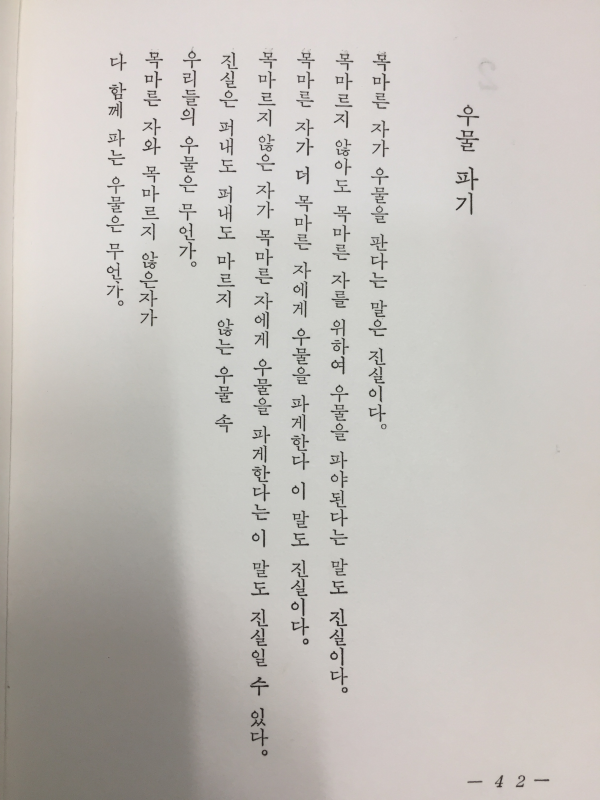 우물 파기
목마른 자가 우물을 판다는 말은 진실이다.
목마르지 않아도 목마른 자를 위하여 우물을 파야된다는 말도 진실이다.
목마른 자가 더 목마른 자에게 우물을 파게한다 이 말도 진실이다.
목마르지 않은 자가 목마른 자에게 우물을 파게한다는 이 말도 진실일 수 있다.
진실은 퍼내도 퍼내도 마르지 않는 우물 속
우리들의 우물은 무언가.
목마른 자와 목마르지 않은자가
다 함께 파는 우물은 무언가.
— 42 —